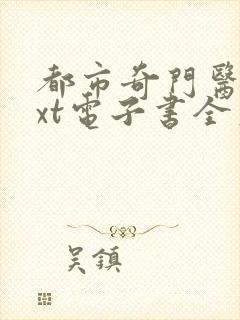 都市奇門醫
xt電子書全
吳鎮